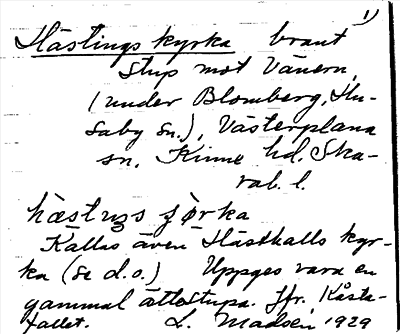 1)
Hästings kyrka brant
stup mot Vänern,
(under Blomberg, Hu-
saby sn.), Västerplana
sn. Kinne hd. Ska-
rab. l.
hæstiŋs
Kallas även Hästhalls kyr-
ka (se d.o.) Uppges vara en
gammal ättestupa. Jfr. Kåsta-
fallet. L. Madsén 1929